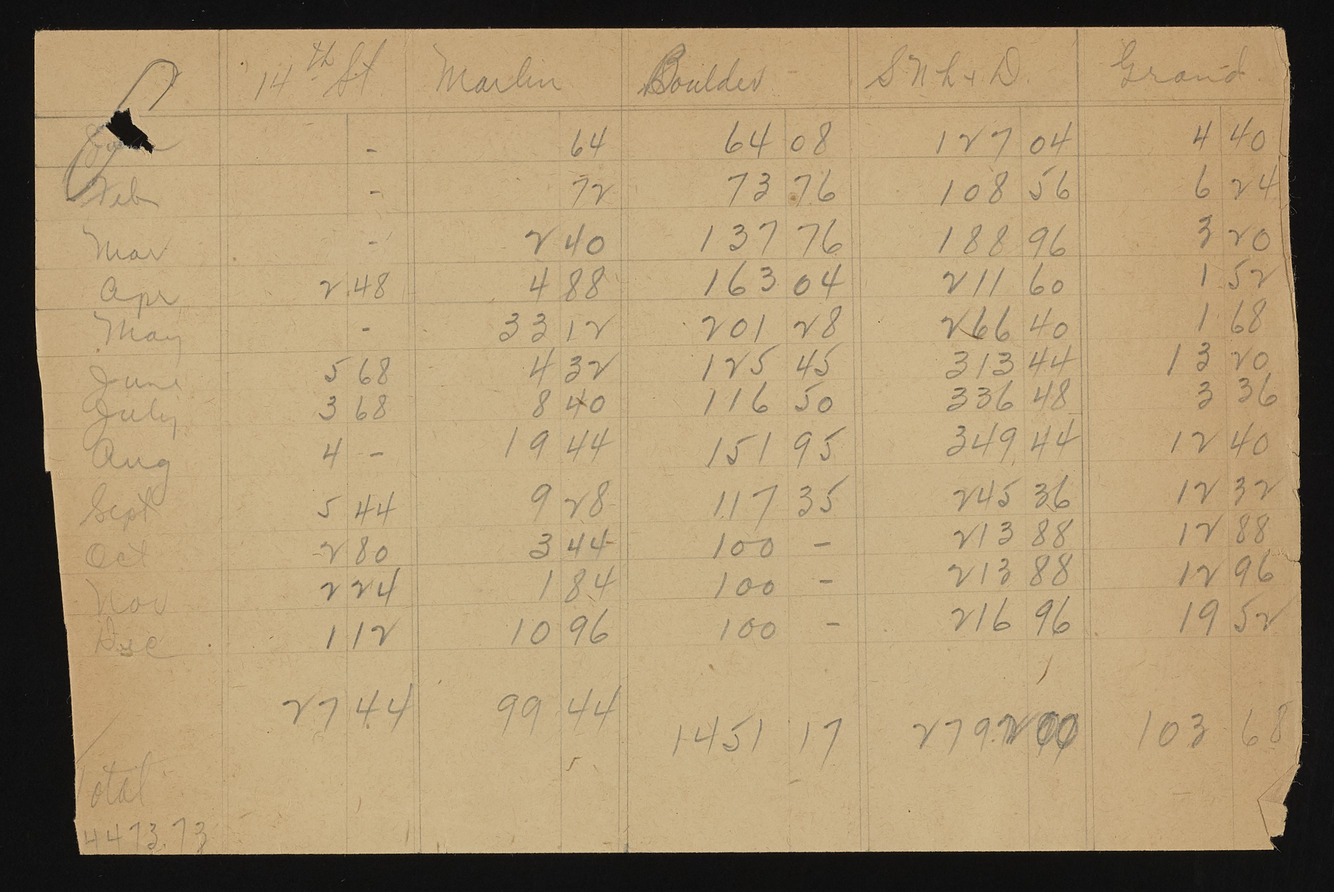 14th St Marlin Boulder S N L & D. Grand
Jan - 64 64 08 127 04 4 40
Feb - 72 73 76 108 56 6 24
Mar - 2 40 137 76 188 96 3 20
Apr 2 48 4 88 163 04 211 60 1 52
May - 33 12 201 28 266 40 1 68
June 5 68 4 32 125 45 313 44 13 20
July 3 68 8 40 116 50 336 48 3 36
Aug 4 - 19 44 151 95 349 44 12 40
Sept 5 44 9 28 117 35 245 36 12 32
Oct 2 80 3 44 100 - 213 88 12 88
Nov 2 24 1 84 100 - 213 88 12 96
Dec 1 12 10 96 100 - 216 96 19 52
27 44 99 44 1451 17 2792 00 103 68
Total
4473.73